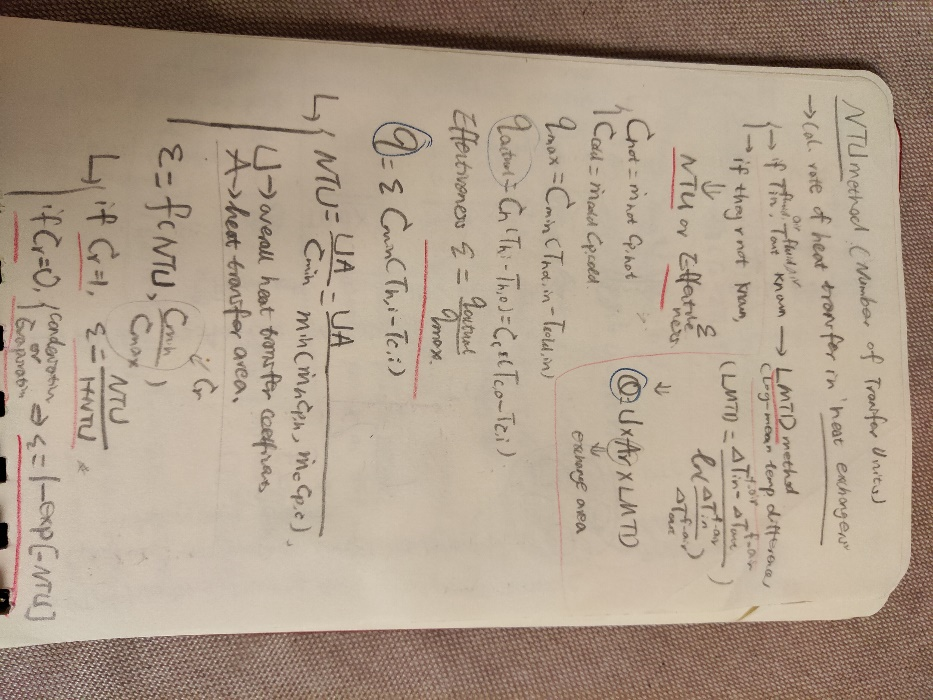 NTU method (Number of Transfer Units)
→ Cal. rate of heat transfer in heat exchangers
→ if T fluid, in or T fluid, out known → LMTD method
(Log-mean temp difference,
→ if they r not known,
(LMTD = ΔTin - ΔTout / ln(ΔTin / ΔTout))
⇓
NTU or Effective ness. ε
↓
Q = U × Ar × LMTD
↓
exchange area
{ Chot = ṁhot Cp,hot
Ccold = ṁcold Cp,cold
qmax = Cmin (Thot,in - Tcold,in)
qactual = Ch (Th,i - Th,o) = Cc (Tc,o - Tc,i)
Effectiveness ε = qactual / qmax.
q = ε Cmin (Th,i - Tc,i)
↳ { NTU = UA / Cmin = UA / min(ṁh Cp,h, ṁc Cp,c),
U → overall heat transfer coefficients
A → heat transfer area,
ε = f(NTU, Cmin / Cmax)
Cr
↳ { if Cr=1, ε = NTU / 1+NTU *
if Cr=0, { condensation or evaporation ⇒ ε = 1 - exp[-NTU]